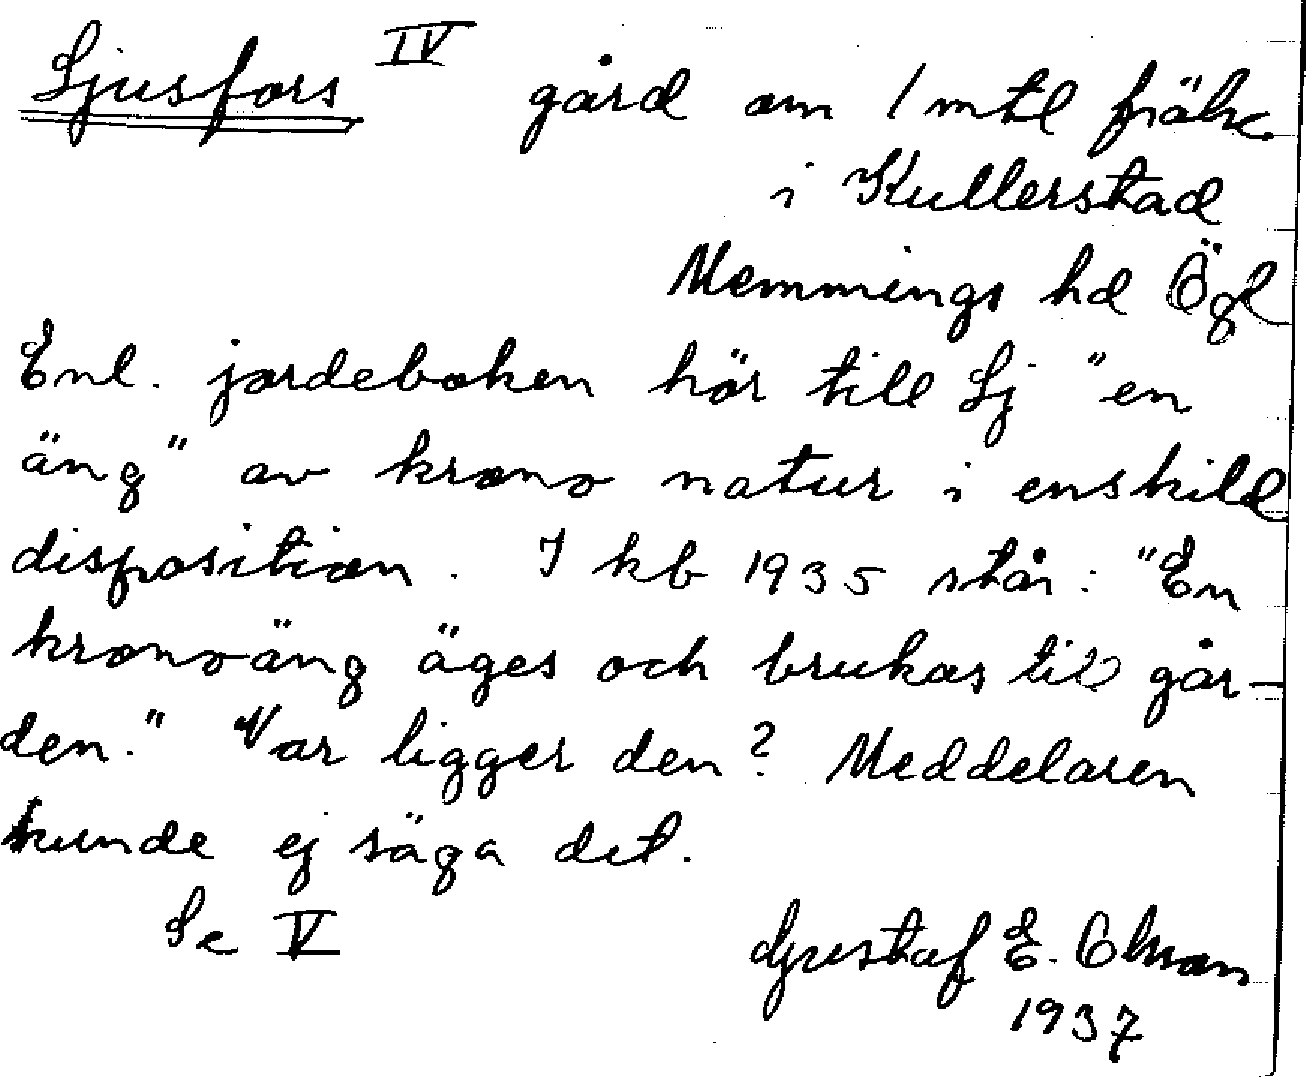 Ljusfors IV gård om 1 mtl frälse
i Kullerstad
Memmings hd Ögl
Enl. jordeboken hör till Lj "en
äng" av krono natur i enskild
disposition. I kb 1935 står: "En
kronoäng äges och brukas till går-
den." Var ligger den? Meddelaren
kunde ej säga det.
Se V
Gustaf E. Olsson
1937